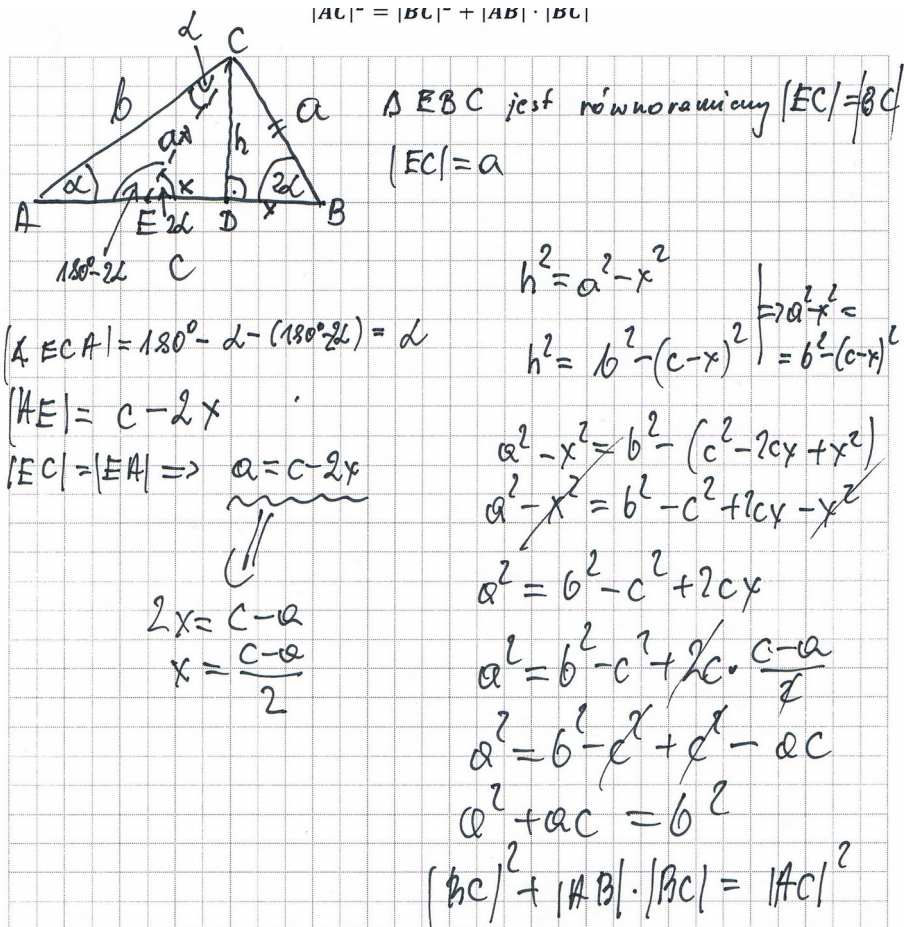 |AC|² = |BC|² + |AB| · |BC|
α
C
b
a
a
h
α
x
2α
A
E
2α
D
x
B
180°-2α
C
Δ EBC jest równoramienny |EC|=|BC|
|EC|=a
|∢ ECA|=180°-α-(180°-2α)=α
|AE|= c-2x
|EC|=|EA| => a=c-2x
2x=c-a
x=\frac{c-a}{2}
h²=a²-x²
h²= b²-(c-x)²
=>a²-x²=
=b²-(c-x)²
a²-x²=b²-(c²-2cx+x²)
a²-x²=b²-c²+2cx-x²
a²=b²-c²+2cx
a²=b²-c²+2c·\frac{c-a}{2}
a²=b²-c²+c²-ac
a²+ac=b²
|BC|²+|AB|·|BC|=|AC|²